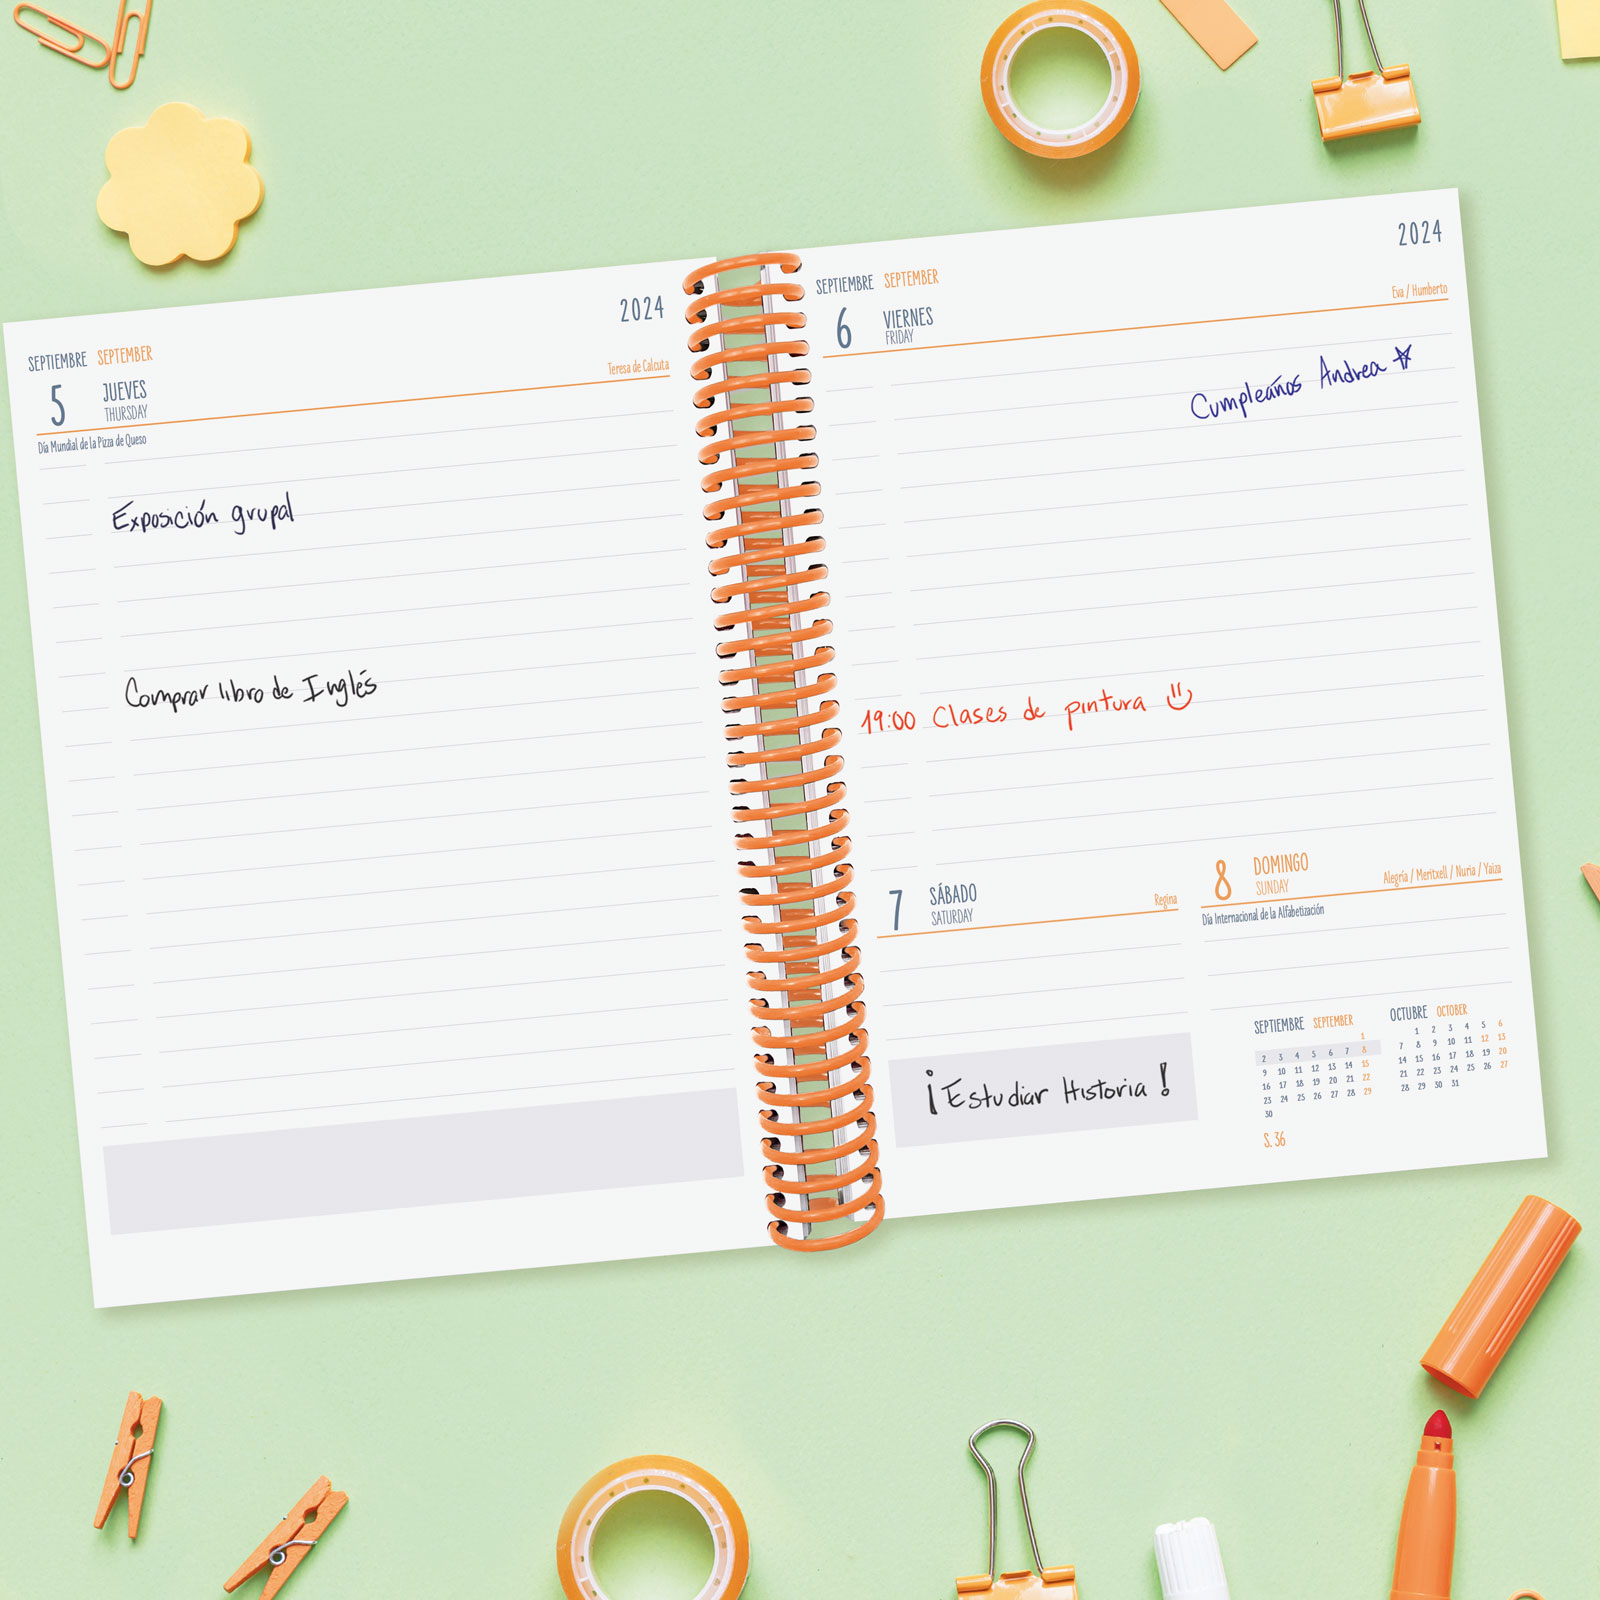 2024
SEPTIEMBRE SEPTEMBER
5 JUEVES
THURSDAY
Teresa de Calcuta
Día Mundial de la Pizza de Queso
Exposición grupal
Comprar libro de Inglés
2024
SEPTIEMBRE SEPTEMBER
6 VIERNES
FRIDAY
Eva / Humberto
Cumpleaños Andrea
19:00 Clases de pintura
7 SÁBADO
SATURDAY
Regina
¡Estudiar Historia!
8 DOMINGO
SUNDAY
Alegría / Meritxell / Nuria / Yaiza
Día Internacional de la Alfabetización
SEPTIEMBRE SEPTEMBER
1
2 3 4 5 6 7 8
9 10 11 12 13 14 15
16 17 18 19 20 21 22
23 24 25 26 27 28 29
30
S. 36
OCTUBRE OCTOBER
1 2 3 4 5 6
7 8 9 10 11 12 13
14 15 16 17 18 19 20
21 22 23 24 25 26 27
28 29 30 31